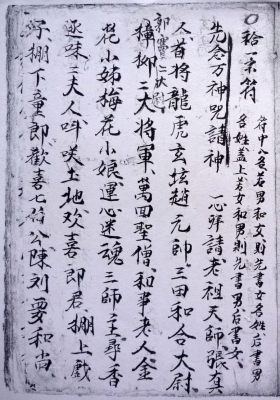 拾一柔符
符中八名若男和女則先書女名姓后書男
名姓盖上若女和男則先書男后書女
先念万神咒請神 一心拜請老祖天師張真
人首将龍虎玄坛趙元帥三田和合大尉
郭雷二大尉
樟柳二大將軍萬回聖僧和事老人金
花小姊梅花小娘運心迷魂三師主尋香
逐味二大人呌咲土地欢喜郎君棚上戲
棚下童郎歡喜七姑公陳刘
和尚